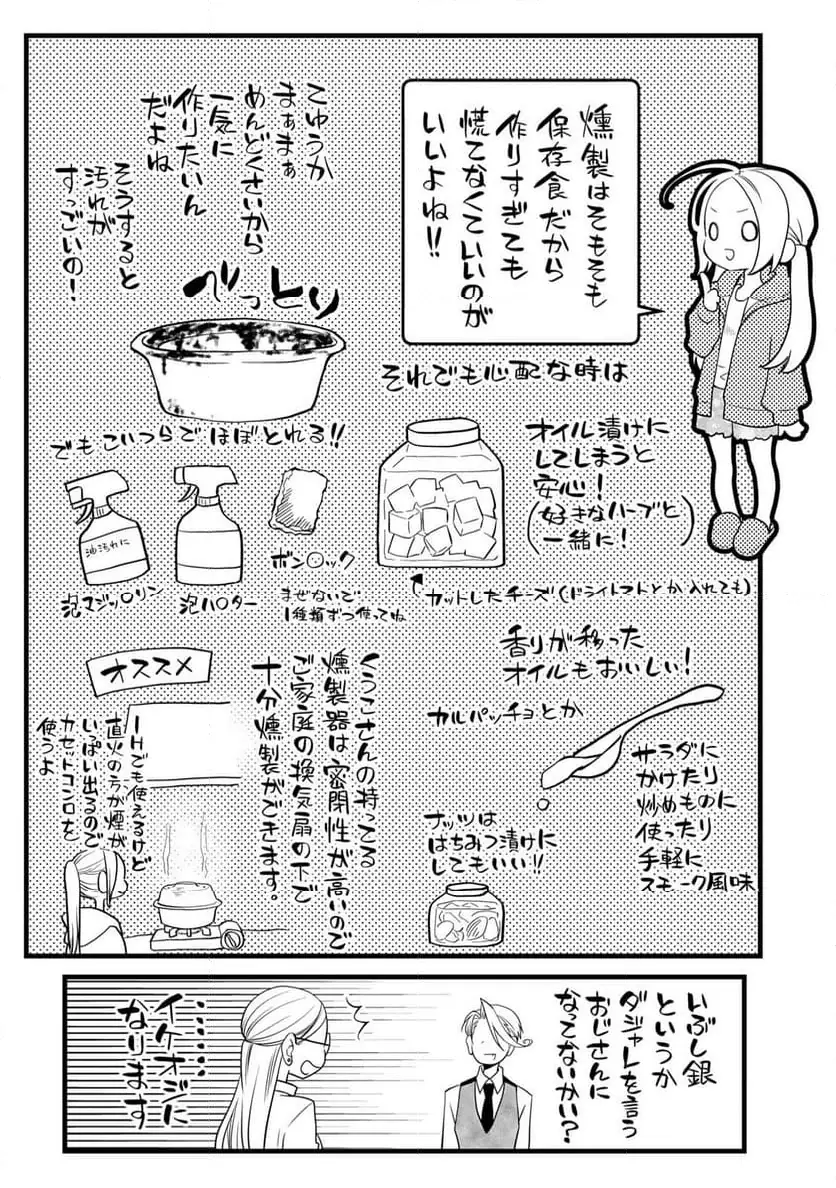 燻製はそもそも
保存食だから
作りすぎても
慌てなくていいのが
いいよね!!
てゆうか
まぁまぁ
めんどくさいから
一気に
作りたいん
だよね
そうすると
汚れが
すっごいの!
べっとり
でもこいつらでほぼとれる!!
油汚れに
泡マジッ〇リン
泡ハ〇ター
ボン〇ック
まぜないで
1種類ずつ使ってね
それでも心配な時は
オイル漬けに
してしまうと
安心!
(好きなハーブと
一緒に!)
カットしたチーズ(ドライトマトとか入れても)
香りが移った
オイルもおいしい!
カルパッチョとか
サラダに
かけたり
炒めものに
使ったり
手軽に
スモーク風味
ナッツは
はちみつ漬けに
してもいい!!
くうこさんの持ってる
燻製器は密閉性が高いので
ご家庭の換気扇の下で
十分燻製ができます。
オススメ
IHでも使えるけど
直火の方が煙が
いっぱい出るので
カセットコンロを
使うよ
いぶし銀
というか
ダジャレを言う
おじさんに
なってないかい?
……
イケオジに
なります